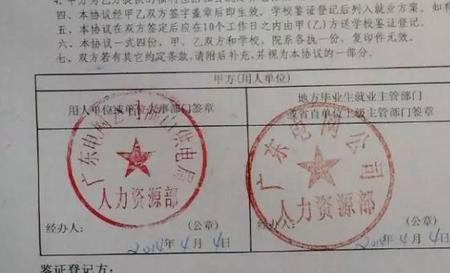 四、本协议经甲乙双方签字盖章后即生效。学校鉴证登记后列入就业方案。如有
五、本协议在双方签定后应在10个工作日之内由甲(乙)方送学校鉴证登记。
六、本协议一式四份，甲、乙双方和学校、院系各执一份，复印件无效。
七、双方若有其它约定条款，请附后补充，并视为本协议的一部分。
甲方(用人单位)
用人单位或单位人事部门签章
地方毕业生就业主管部门
或省直单位上级主管部门签章
广东电网 供电局
人力资源部
广东电网公司
人力资源部
经办人： (公章)
2014年4月4日
经办人： (公章)
2014年4月4日
鉴证登记方：